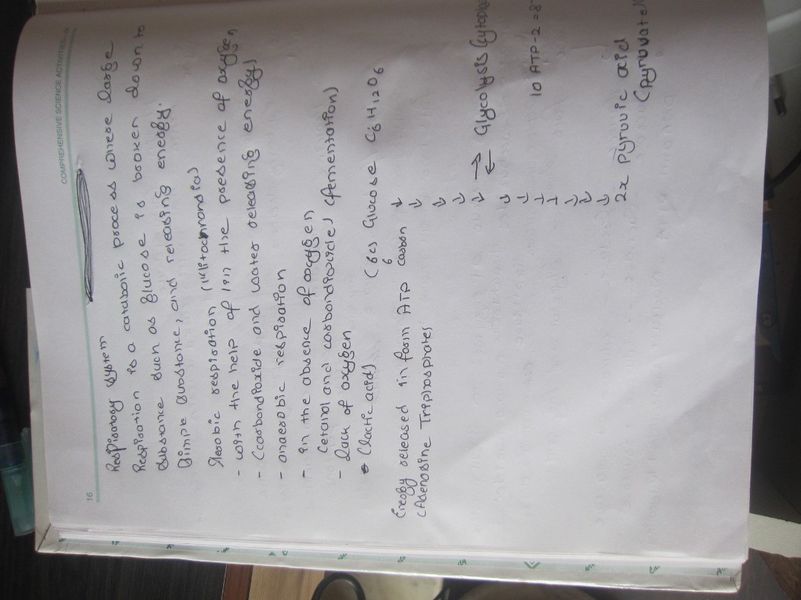 COMPREHENSIVE SCIENCE ACTIVITIES
16
Respiratory System
Respiration is a catabolic process where large
substance such as glucose is broken down to
simple substance, and releasing energy.
Aerobic respiration (Mitochondria)
- with the help of / in the presence of oxygen
- (carbondioxide and water releasing energy)
- anaerobic respiration
- in the absence of oxygen
(etanol and carbondioxide) (fermentation)
- lack of oxygen
(lactic acid) (6c) Glucose C6H12O6
Energy released in form ATP 6 carbon
(Adenosine Tripnosprates
Glycolysis (cytop
10 ATP-2=8
2x pyruvic acid
(pyruvate